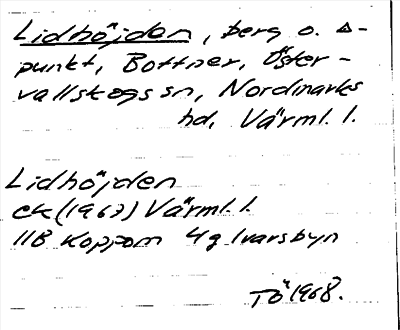 Lidhöjden, berg o. △-
punkt, Bottner, Öster-
vallskogs sn, Nordmarks
hd, Värml. l.
Lidhöjden
ek (1967) Värml. l.
11B Koppom 4g Ivarsbyn
TÖ 1968.